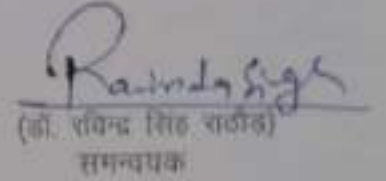 Ravindra Singh
(डॉ. रविन्द्र सिंह राठौड़)
समन्वयक